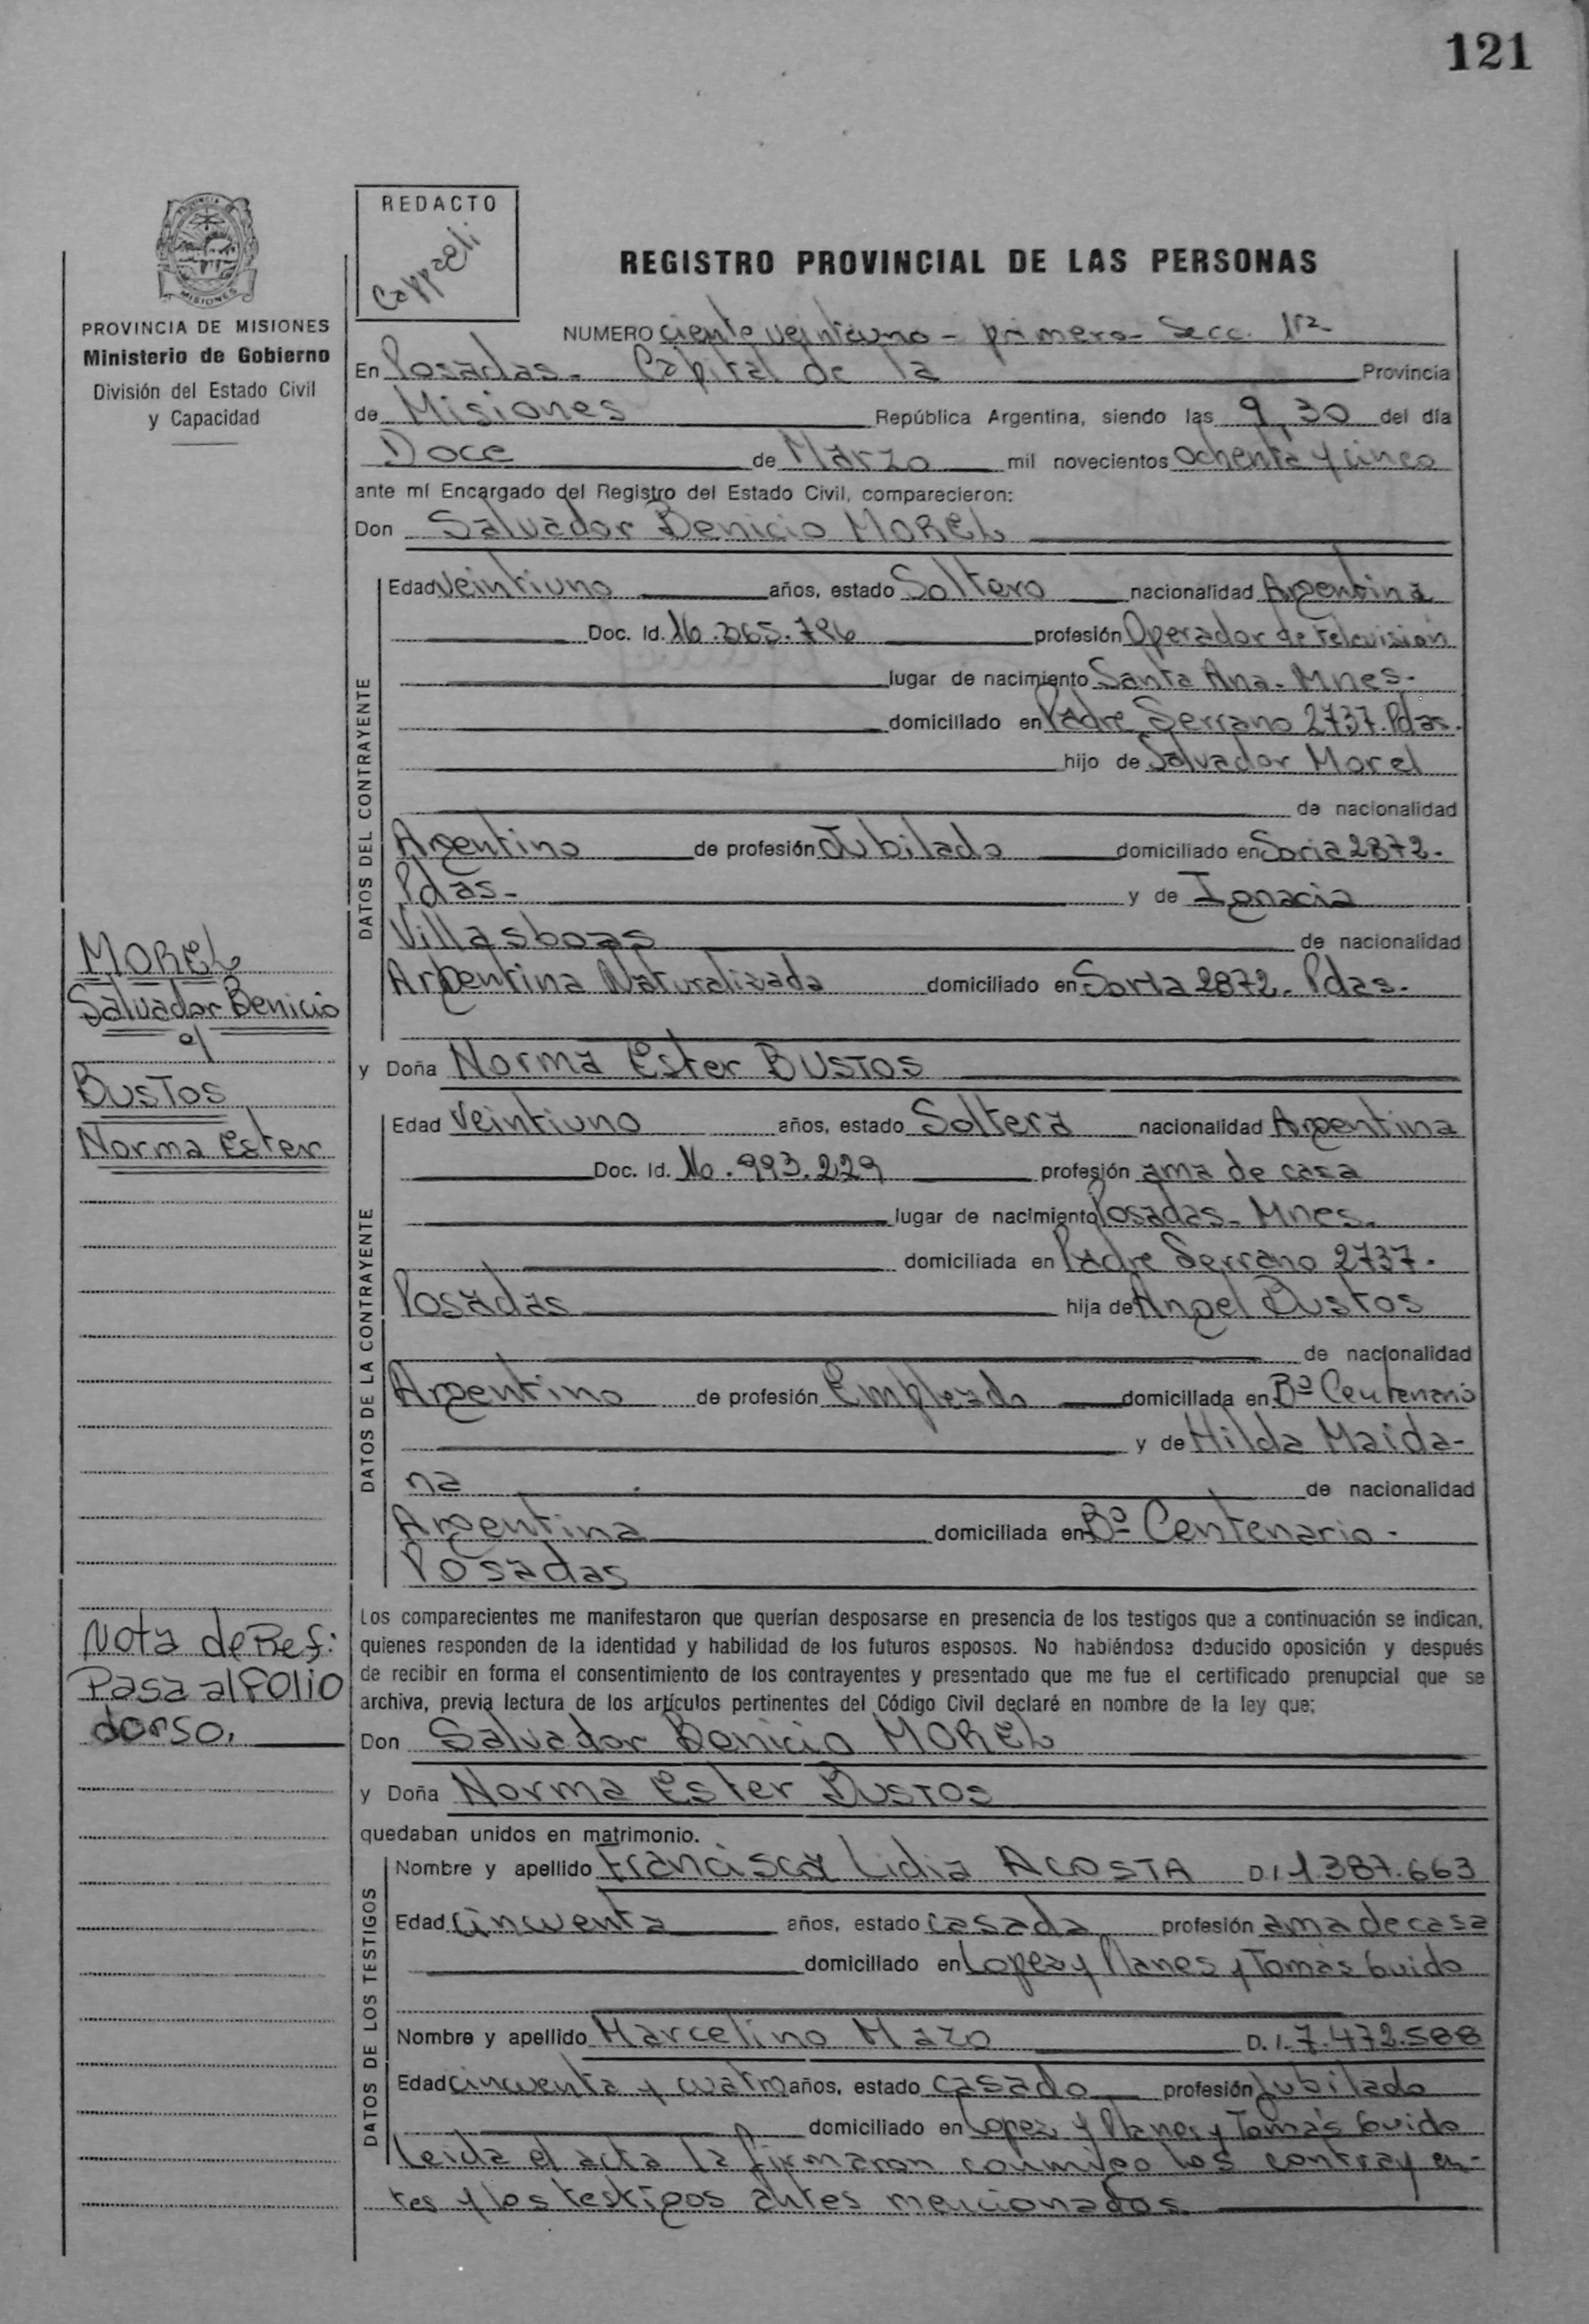 121
REDACTO
Cappaeli
REGISTRO PROVINCIAL DE LAS PERSONAS
PROVINCIA DE MISIONES
Ministerio de Gobierno
División del Estado Civil
y Capacidad
NUMERO ciento veintiuno - primera - Secc. 1ra
En Posadas - Capital de la Provincia
de Misiones República Argentina, siendo las 9,30 del día
Doce de Marzo mil novecientos ochenta y cinco
ante mí Encargado del Registro del Estado Civil, comparecieron:
Don Salvador Benicio MOREL
DATOS DEL CONTRAYENTE
Edad veintiuno años, estado Soltero nacionalidad Argentina
Doc. Id. 16.365.796 profesión Operador de television
lugar de nacimiento Santa Ana - Mnes -
domiciliado en Padre Serrano 2737. Pdas.
hijo de Salvador Morel
de nacionalidad
Argentino de profesión Jubilado domiciliado en Soria 2872 -
Pdas - y de Ignacia
Villasboas de nacionalidad
Argentina Naturalizada domiciliado en Soria 2872 - Pdas -
MOREL
Salvador Benicio
c/
BUSTOS
Norma Ester
y Doña Norma Ester BUSTOS
DATOS DE LA CONTRAYENTE
Edad Veintiuno años, estado Soltera nacionalidad Argentina
Doc. Id. 16.993.229 profesión ama de casa
lugar de nacimiento Posadas - Mnes.
domiciliada en Padre Serrano 2737 -
Posadas hija de Angel Bustos
de nacionalidad
Argentino de profesión Empleado domiciliada en Bº Centenario
y de Hilda Maida-
na de nacionalidad
Argentina domiciliada en Bº Centenario -
Posadas
Nota de Ref:
Pasa al FOLIO
dorso.
Los comparecientes me manifestaron que querían desposarse en presencia de los testigos que a continuación se indican,
quienes responden de la identidad y habilidad de los futuros esposos. No habiéndose deducido oposición y después
de recibir en forma el consentimiento de los contrayentes y presentado que me fue el certificado prenupcial que se
archiva, previa lectura de los artículos pertinentes del Código Civil declaré en nombre de la ley que:
Don Salvador Benicio MOREL
y Doña Norma Ester BUSTOS
quedaban unidos en matrimonio.
DATOS DE LOS TESTIGOS
Nombre y apellido Francisca Lidia ACOSTA D.I 1.387.663
Edad cincuenta años, estado casada profesión ama de casa
domiciliado en Lopez y Planes y Tomás Guido
Nombre y apellido Marcelino Mazo D.I. 7.472.588
Edad cincuenta y cuatro años, estado casado profesión Jubilado
domiciliado en Lopez y Planes y Tomás Guido
Leida el acta la firmaron conmigo los contrayen-
tes y los testigos antes mencionados